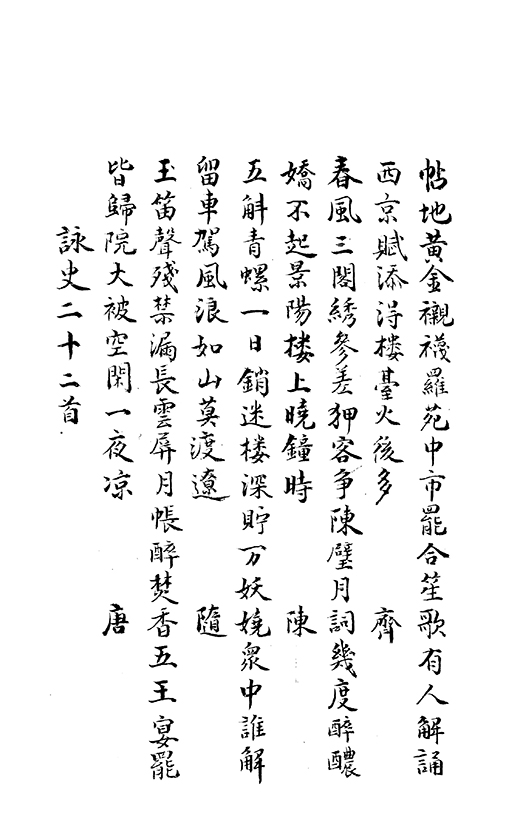 帖地黃金襯襪羅苑中市罷合笙歌有人解誦
西京賦添得樓臺火後多 齊
春風三閣綉參差狎客爭陳璧月詞幾度醉醲
嬌不起景陽楼上曉鐘時 陳
五斛青螺一日銷迷楼深貯万妖嬈衆中誰解
留車駕風浪如山莫渡遼 隨
玉笛聲殘禁漏長雲屏月帳醉焚香五王宴罷
皆歸院大被空閑一夜凉 唐
詠史二十二首